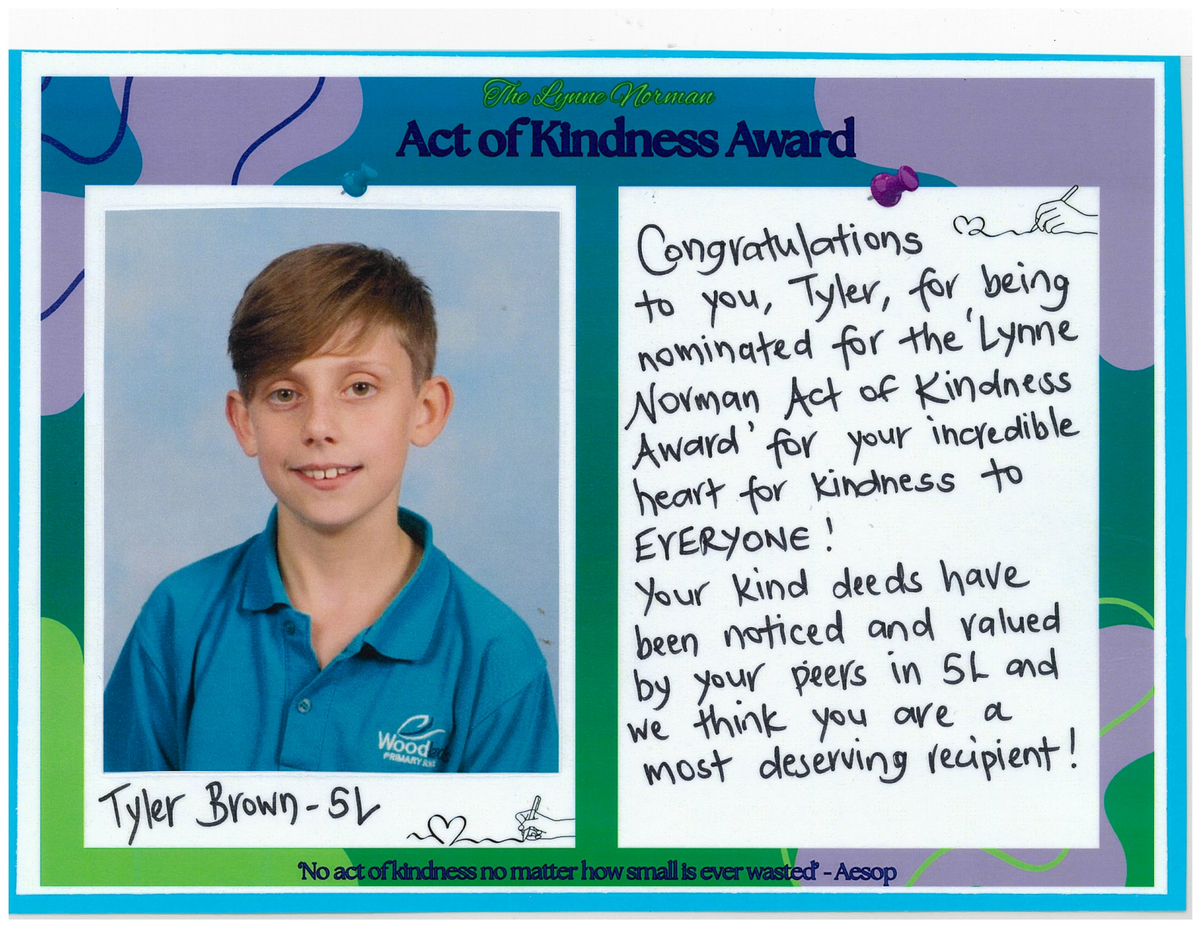 The Lynne Norman
Act of Kindness Award
Congratulations
to you, Tyler, for being
nominated for the 'Lynne
Norman Act of Kindness
Award' for your incredible
heart for kindness to
EVERYONE!
Your kind deeds have
been noticed and valued
by your peers in 5L and
we think you are a
most deserving recipient!
Wood
PRIMARY
Tyler Brown - 5L
'No act of kindness no matter how small is ever wasted' - Aesop